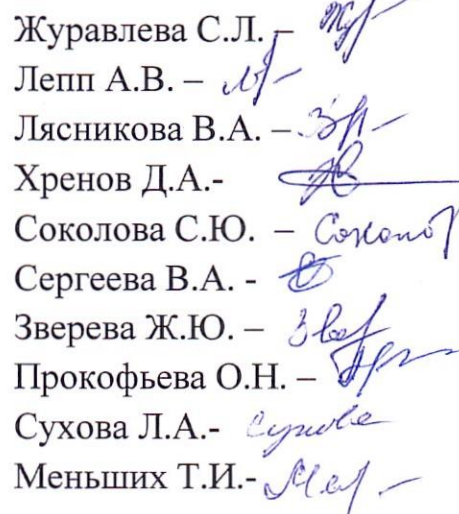 Журавлева С.Л. –
Лепп А.В. –
Лясникова В.А. –
Хренов Д.А.-
Соколова С.Ю. –
Сергеева В.А. -
Зверева Ж.Ю. –
Прокофьева О.Н. –
Сухова Л.А.- Сухова
Меньших Т.И.-